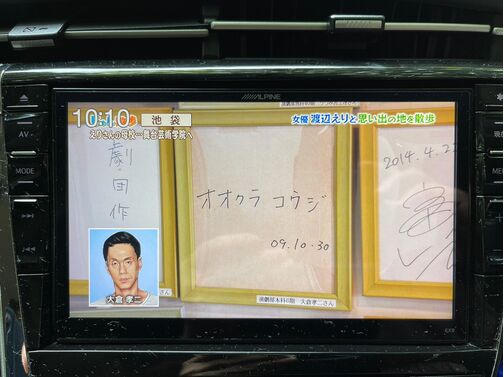 ALPINE
10:10
池袋
えりさんの母校…舞台芸術学院へ
女優 渡辺えりと思い出の地を散歩
AV
MODE
劇・団作
オオクラ コウジ
09.10.30
2014.4.2
大倉 孝二
演劇部本科6期 大倉孝二さん
さん
EX9